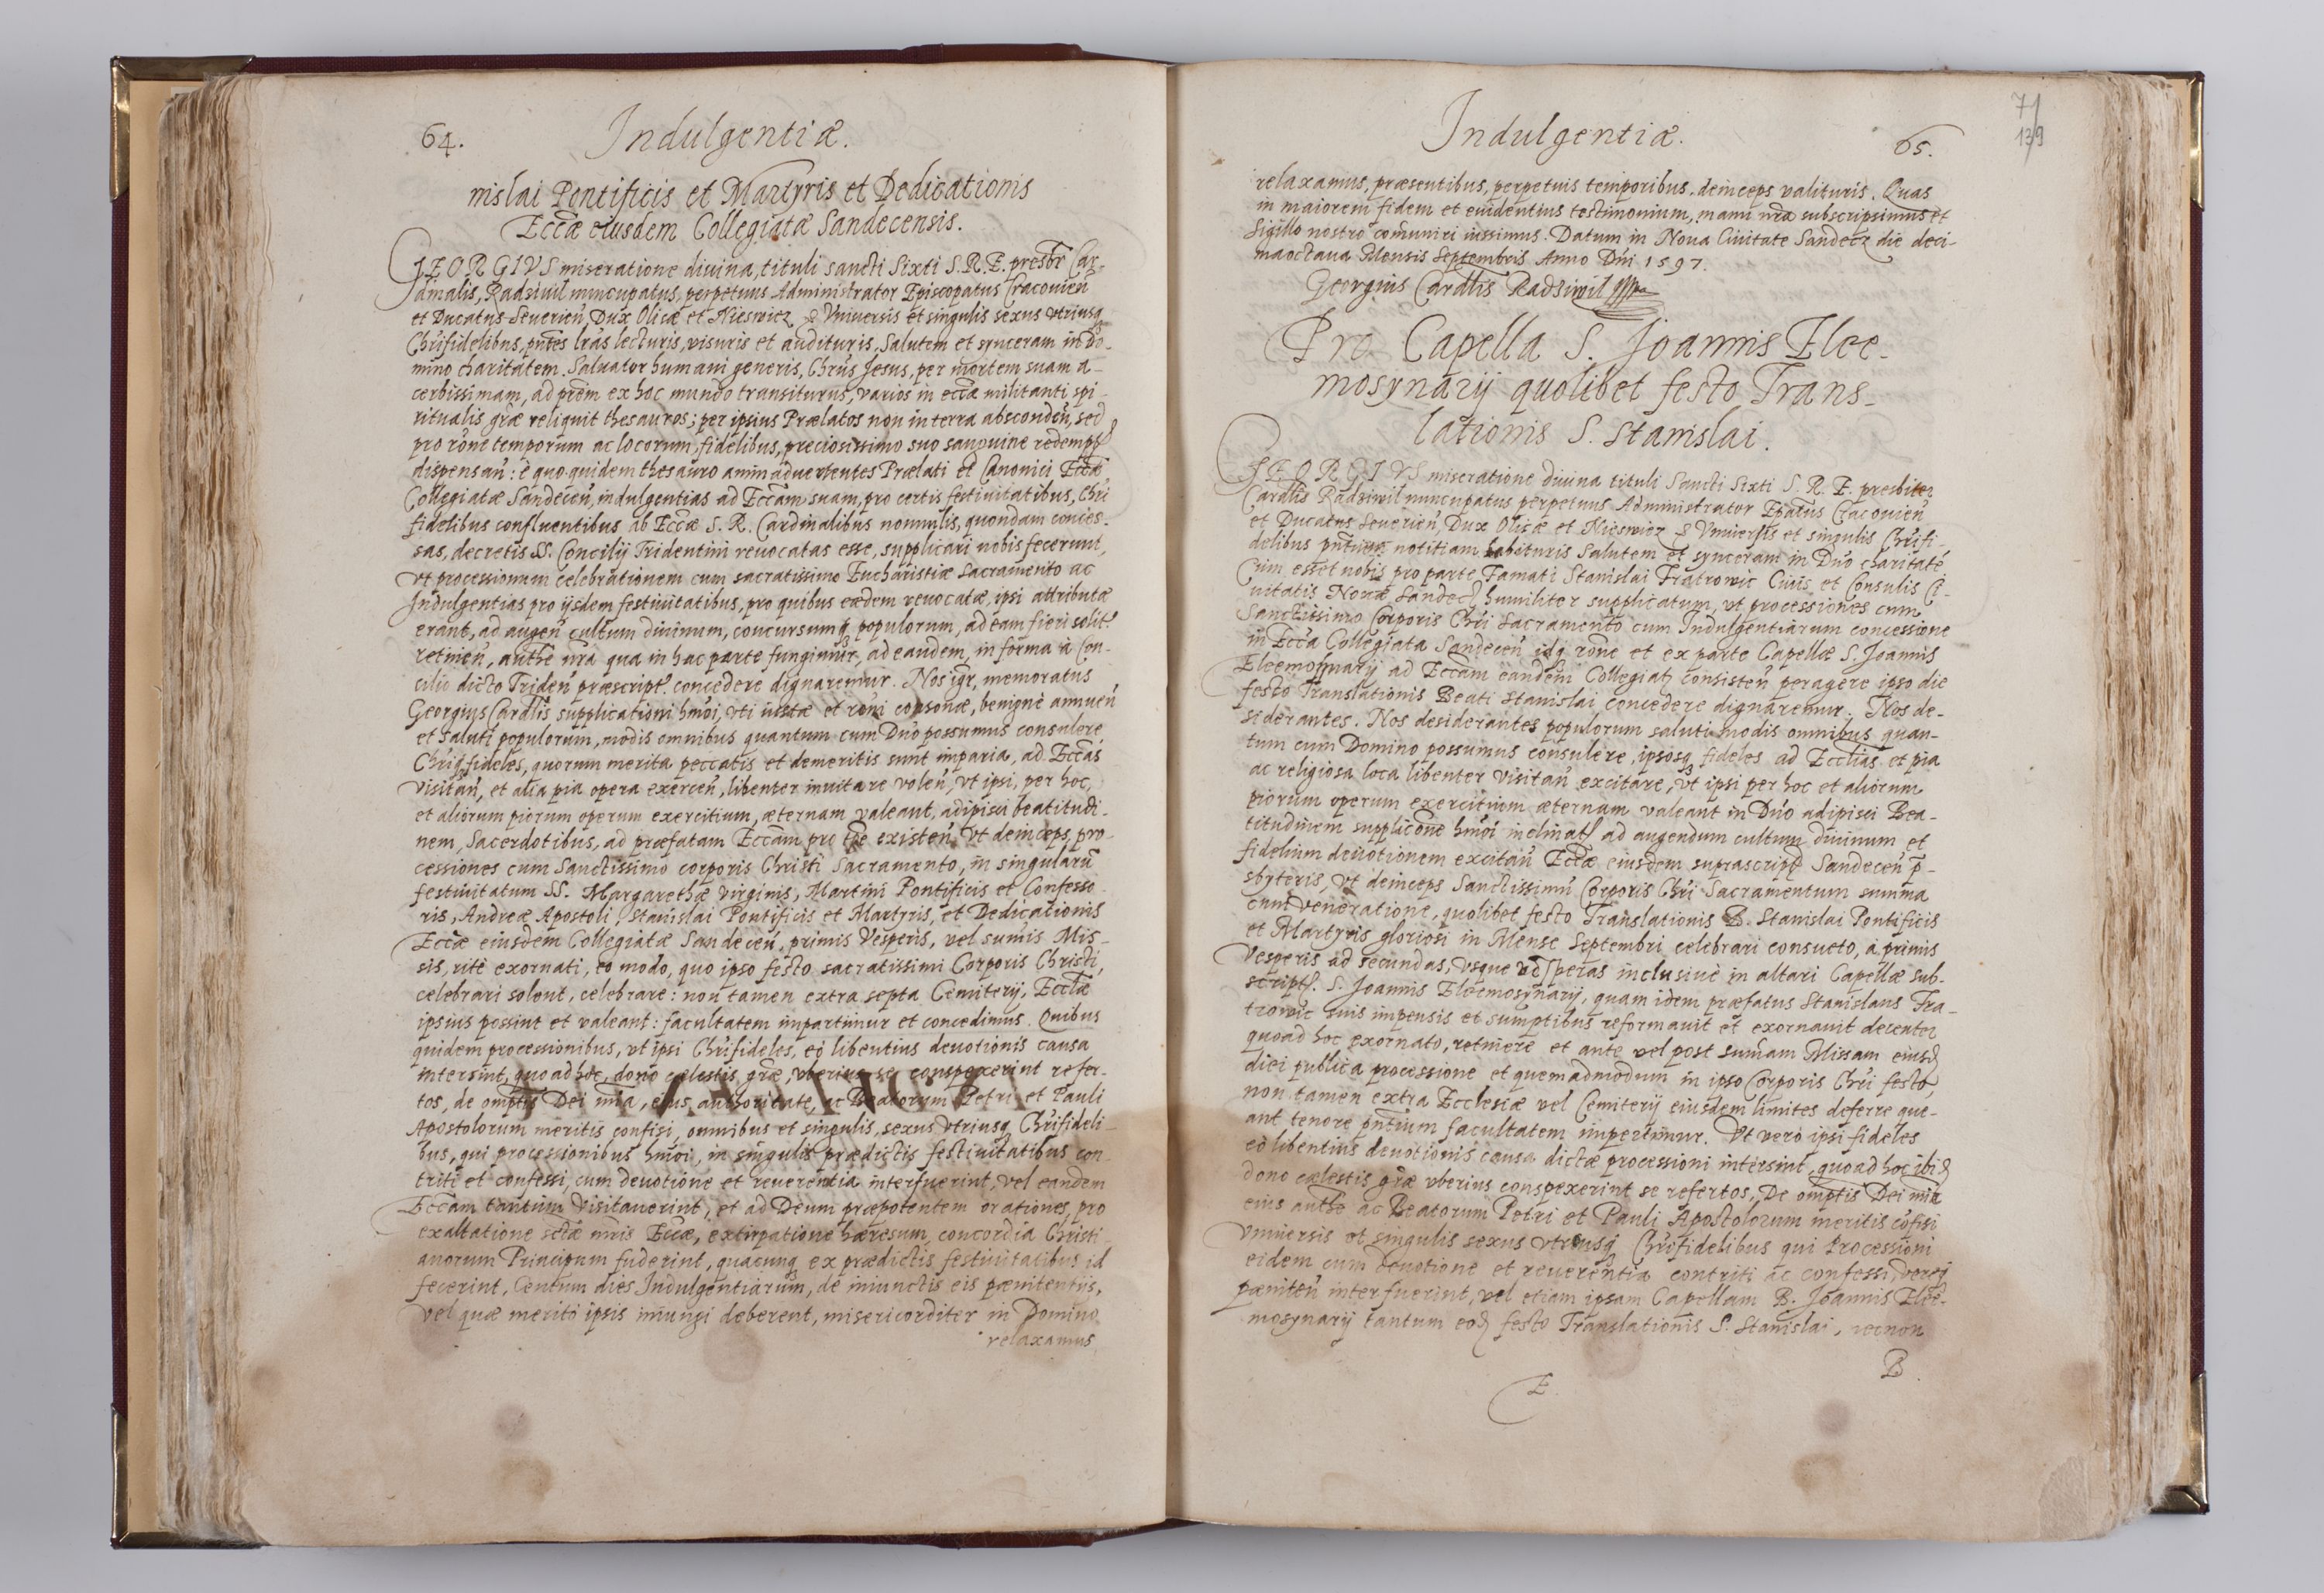 64. Indulgentiæ.
nislai Pontificis et Martyris et Dedicationis
Eccæ eiusdem Collegiatæ Sandecensis.
GEORGIVS miseratione diuina, tituli sancti Sixti S. R. E. presbr Car-
dinalis, Radziuil nuncupatus, perpetuus Administrator Episcopatus Cracouien
et Ducatus Seuerien, Dux Olicæ et Nieswiez & Vniuersis et singulis sexus vtriusq
Chrifidelibus, pntes lras lecturis, visuris et audituris, Salutem et synceram in Do-
mino charitatem. Saluator humani generis, Chrus Jesus, per mortem suam a-
cerbissimam, ad prem ex hoc mundo transiturus, varios in ecca militanti spi-
ritualis græ reliquit thesauros; per ipsius Prælatos non in terra absconden, sed
pro rone temporum ac locorum, fidelibus, preciosissimo suo sanguine redempt
dispensan: è quo quidem thesauro animaduertentes Prælati et Canonici Eccæ
Collegiatæ Sandecen, indulgentias ad Eccam suam, pro certis festiuitatibus, Chri
fidelibus confluentibus ab Eccæ S. R. Cardinalibus nonnulis, quondam conces-
sas, decretis SS. Concilij Tridentini reuocatas esse, supplicari nobis fecerunt,
vt processionum celebrationem cum sacratissimo Eucharistiæ Sacramento ac
Indulgentias pro ijsdem festiuitatibus, pro quibus eædem reuocatæ, ipsi attributæ
erant, ad augen cultum diuinum, concursumq populorum, ad eam fieri solit
retinen, authe nra qua in hac parte fungimur, ad eandem, in forma à Con-
cilio dicto Triden præscript. concedere dignaremur. Nos igr, memoratus
Georgius Cardlis supplicationi hmoi, vti iustæ et roni consonæ, benignè annuen
et saluti populorum, modis omnibus quantum cum Dno possumus consulere,
Chriq fideles, quorum merita peccatis et demeritis sunt imparia, ad Eccas
visitan, et alia pia opera exercen, libenter inuitare volen, vt ipsi, per hoc,
et aliorum piorum operum exercitium, æternam valeant, adipisci beatitudi-
nem, Sacerdotibus, ad præfatam Eccam pro tpe existen, vt deinceps, pro-
cessiones cum Sanctissimo corporis Christi Sacramento, in singularu
festiuitatum SS. Margarethæ virginis, Martini Pontificis et Confesso-
ris, Andreæ Apostoli, Stanislai Pontificis et Martyris, et Dedicationis
Eccæ eiusdem Collegiatæ Sandecen, primis Vesperis, vel sumis Mis-
sis, ritè exornati, eo modo, quo ipso festo sacratissimi Corporis Christi,
celebrari solent, celebrare: non tamen extra septa Cemiterij, Ecclæ
ipsius possint et valeant: facultatem impartimur et concedimus. Quibus
quidem processionibus, vt ipsi Chrifideles, eò libentius deuotionis causa
intersint, quo ad hoc, dono cælestis græ, vberius se conspexerint refer-
tos, de omptis Dei mia, eius authoritate, ac Beatorum Petri et Pauli
Apostolorum meritis confisi, omnibus et singulis, sexus vtriusq Chrifideli-
bus, qui processionibus hmoi, in singulis prædictis festiuitatibus con-
triti et confessi, cum deuotione et reuerentia interfuerint, vel eandem
Eccam tantum visitauerint, et ad Deum præpotentem orationes, pro
exaltatione sctæ mris Eccæ, extirpatione hæresum, concordia Christi-
anorum Principum fuderint, quacunq ex prædictis festiuitatibus id
fecerint, Centum dies Indulgentiarum, de iniunctis eis pænitentijs,
vel quæ merito ipsis iniungi deberent, misericorditer in Domino
relaxamus
Indulgentiæ. 65.
71
139
relaxamus, præsentibus, perpetuis temporibus. deinceps valituris. Quas
in maiorem fidem et euidentius testimonium, manu nra subscripsimus et
Sigillo nostro comuniri iussimus. Datum in Noua Ciuitate Sandecz die deci-
maoctaua Mensis Septembris Anno Dni 1597.
Georgius Cardlis Radziwil
Pro Capella S. Joannis Elee-
mosynarij quolibet festo Trans-
lationis S. Stanislai.
GEORGIVS miseratione diuina tituli Sancti Sixti S. R. E. presbiter
Cardlis Radziwil nuncupatus perpetuus Administrator Epatus Cracouien
et Ducatus Seuerien, Dux Olicæ et Nieswiez & Vniuersis et singulis Chrifi-
delibus pntium notitiam habituris Salutem et synceram in Dno charitate
Cum esset nobis pro parte Famati Stanislai Fratrowic Ciuis et Consulis Ci-
uitatis Nouæ Sandecz humiliter supplicatum, vt processiones cum
Sanctissimo Corporis Chri Sacramento cum Indulgentiarum concessione
in Ecca Collegiata Sandecen idq rone et ex parte Capellæ S. Joannis
Eleemosynarij ad Eccam eandem Collegiat consisten peragere ipso die
festo Translationis Beati Stanislai, concedere dignaremur. Nos de-
siderantes. Nos desiderantes populorum saluti modis omnibus quan-
tum cum Domino possumus consulere, ipsosq fideles ad Ecclias et pia
ac religiosa loca libenter visitan excitare, vt ipsi per hoc et aliorum
piorum operum exercitium æternam valeant in Dno adipisci Bea-
titudinem supplicone hmoi inclinati ad augendum cultum diuinum et
fidelium deuotionem excitan Eccæ eiusdem suprascript Sandecen p-
sbyteris, vt deinceps Sanctissimu Corporis Chri Sacramentum summa
cum veneratione, quolibet festo Translationis B. Stanislai Pontificis
et Martyris gloriosi in Mense Septembri celebrari consueto, à primis
Vesperis ad secundas, vsque vesperas inclusiuè in altari Capellæ sub-
script. S. Joannis Eleemosynarij, quam idem præfatus Stanislaus Fra-
trowic suis impensis et sumptibus reformauit et exornauit decenter
quoad hoc exornato, retinere et ante vel post sumam Missam eiusd
diei publica processione et quemadmodum in ipso Corporis Chri festo,
non tamen extra Ecclesiæ vel Cemiterij eiusdem limites deferre que-
ant tenore pntium facultatem impertimur. Vt vero ipsi fideles
eò libentius deuotionis causa dictæ processioni intersint, quoad hoc ibid
dono cælestis græ vberius conspexerint se refertos, De omptis Dei mia
eius authe ac Beatorum Petri et Pauli Apostolorum meritis cofisi
vniuersis et singulis sexus vtriusq Chrifidelibus qui Processioni
eidem cum deuotione et reuerentia contriti ac confessi, vereq
pæniten interfuerint, vel etiam ipsam Capellam B. Joannis Elee-
mosynarij tantum eod festo Translationis S. Stanislai, necnon
B
E.